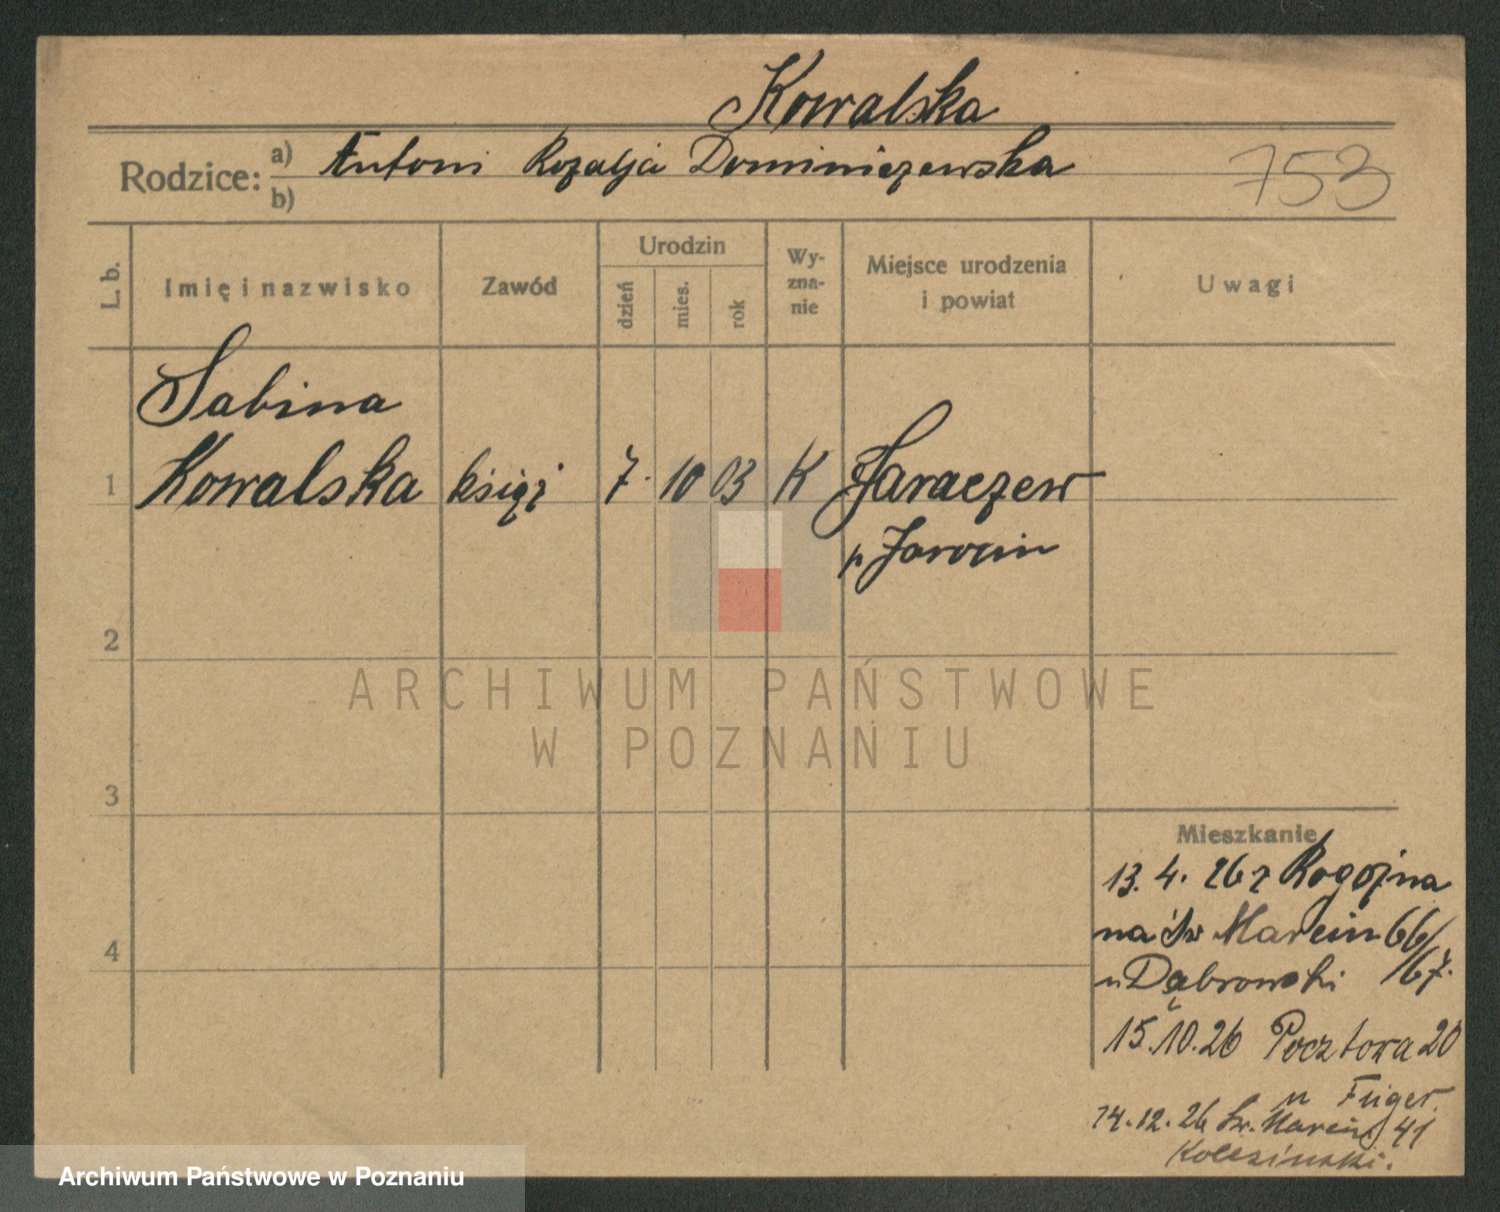 Kowalska
Rodzice: a) Antoni Rozalja Dominiczewska
b)
753
L. b.
Imię i nazwisko
Zawód
Urodzin
dzień
mies.
rok
Wy-
zna-
nie
Miejsce urodzenia
i powiat
Uwagi
Sabina
1 Kowalska księg 7. 10 03 K Jaraczew
p Jarocin
2
ARCHIWUM PAŃSTWOWE
W POZNANIU
3
Mieszkanie
13. 4. 26 z Rogoźna
na Św Marcin 66/
67.
u Dąbrowski
4
15.10.26 Pocztowa 20
u
14.12.26 Św. Marcin 41
Archiwum Państwowe w Poznaniu